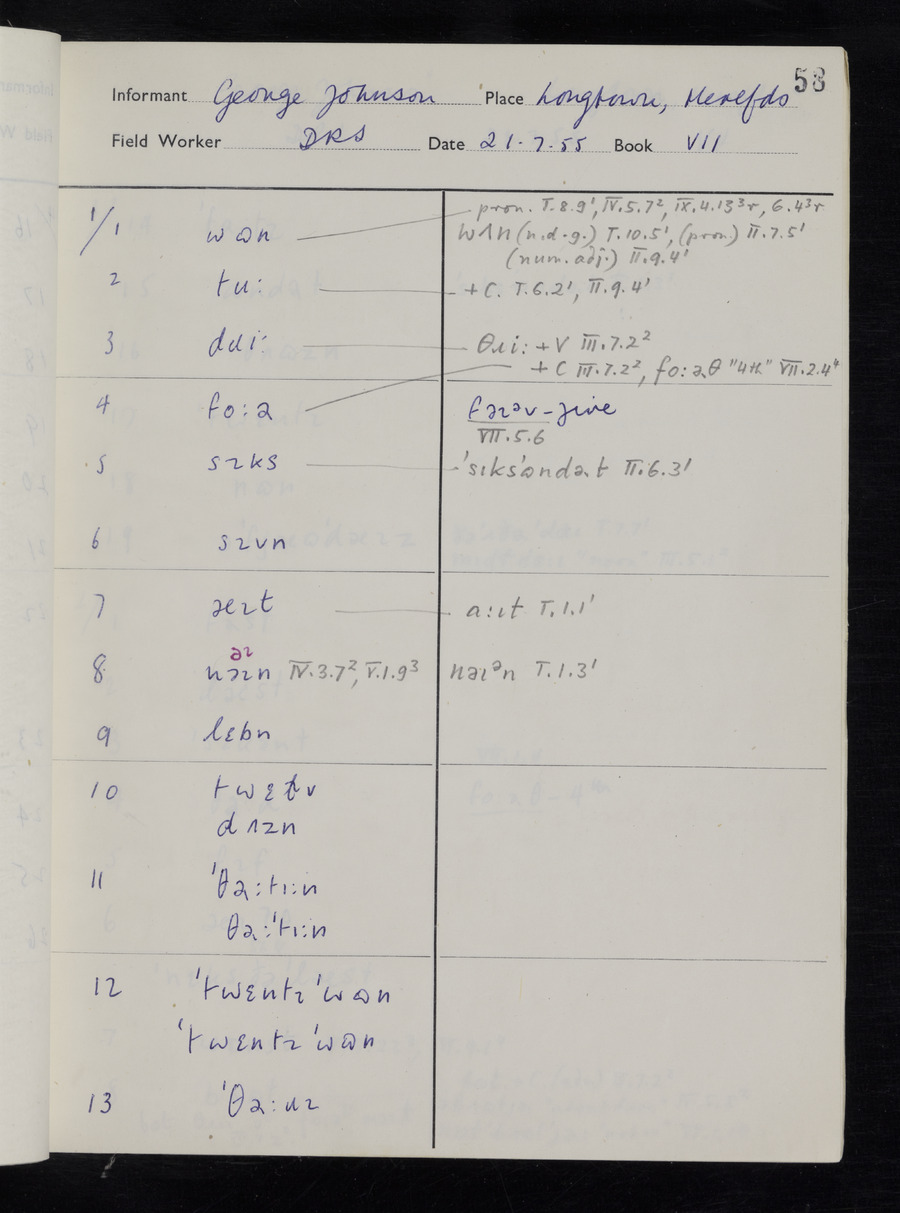 58
Informant George Johnson Place Longtown, Herefds
Field Worker DRS Date 21.7.55 Book VII
1/1 wɒn pron. I.8.9¹, IV.5.7², IX.4.13³r, 6.4³r
wʌn (n.d.g.) I.10.5¹, (pron.) II.7.5¹
(num. adj.) II.9.4¹
2 tu: +C. I.6.2¹, II.9.4¹
3 θɹi: θɹi: +V III.7.2²
+C III.7.2², fo:əθ "4th" VII.2.4⁴
4 fo:ə
VII.5.6
5 sɪks 'sɪks'ɒndəɹt II.6.3¹
6 sɪvn
7 æɪt a:ɪt I.1.1¹
8 nəɪn IV.3.7², V.1.9³ nəɪᵊn I.1.3¹
əɪ
9 lɛbn
10 twɛlv
dʌzn
11 'θə:ti:n
θə:'ti:n
12 'twɛntɪ 'wɒn
'twɛntɪ 'wɒn
13 'θə:ɹɪ